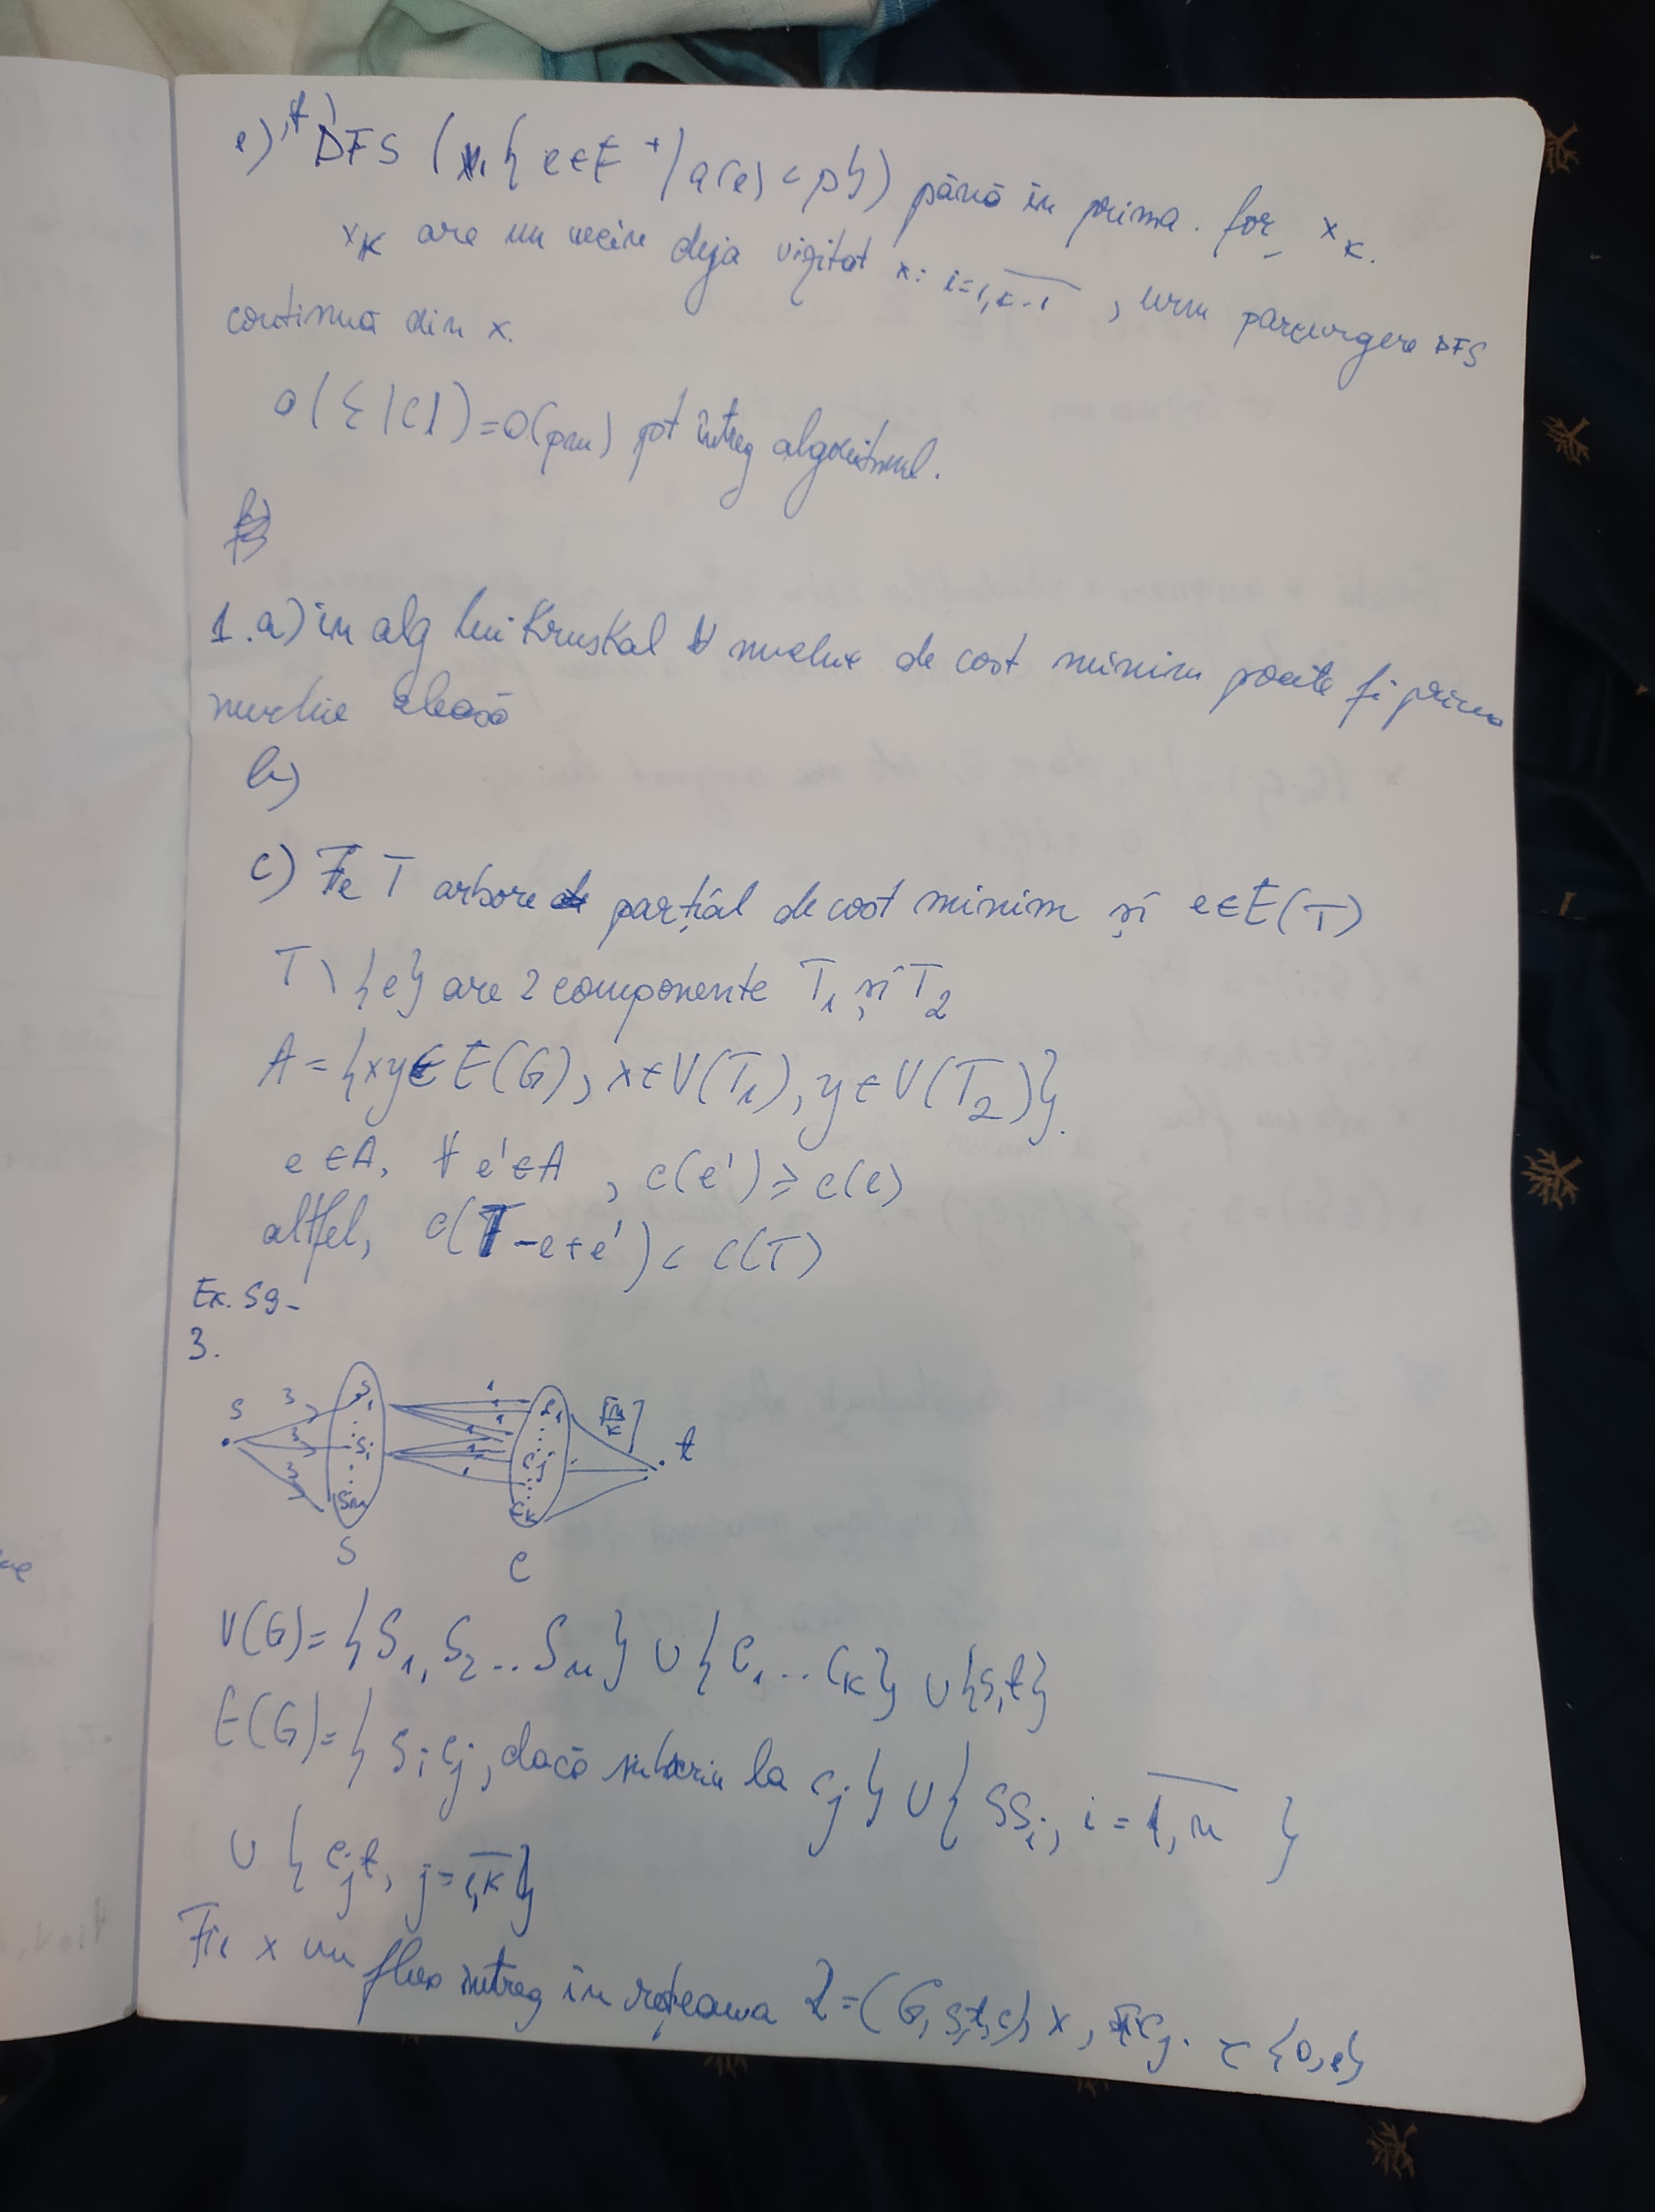 e), f) DFS (x, { e∈E⁺ / a(e) < p }) până în prima for x_k.
x_k are un vecin deja vizitat x_i i=1,k-1 , urm parcurgere DFS
continuă din x.
O(Σ|C|) = O(pm) pt întreg algoritmul.
1. a) în alg lui Kruskal ∀ muchie de cost minim poate fi prima
muchie aleasă
b)
c) Fie T arbore parțial de cost minim și e∈E(T)
T \ {e} are 2 componente T₁ și T₂
A = {xy∈E(G), x∈V(T₁), y∈V(T₂)}.
e∈A, ∀ e'∈A , c(e') ≥ c(e)
altfel, c(T-e+e') < c(T)
Ex. S9-
3.
s 3 3 3 S₁ ... S_i ... S_n 1 1 1 1 1 1 C₁ ... C_j ... C_k t
S C
V(G) = {S₁, S₂ .. S_n} ∪ {C₁ .. C_k} ∪ {s,t}
E(G) = { S_i C_j , dacă la C_j } ∪ { sS_i, i = 1,n }
∪ { C_j t, j = 1,k }
Fie x un flux întreg în rețeaua (G, s,t,c), x, ∈ {0,1}